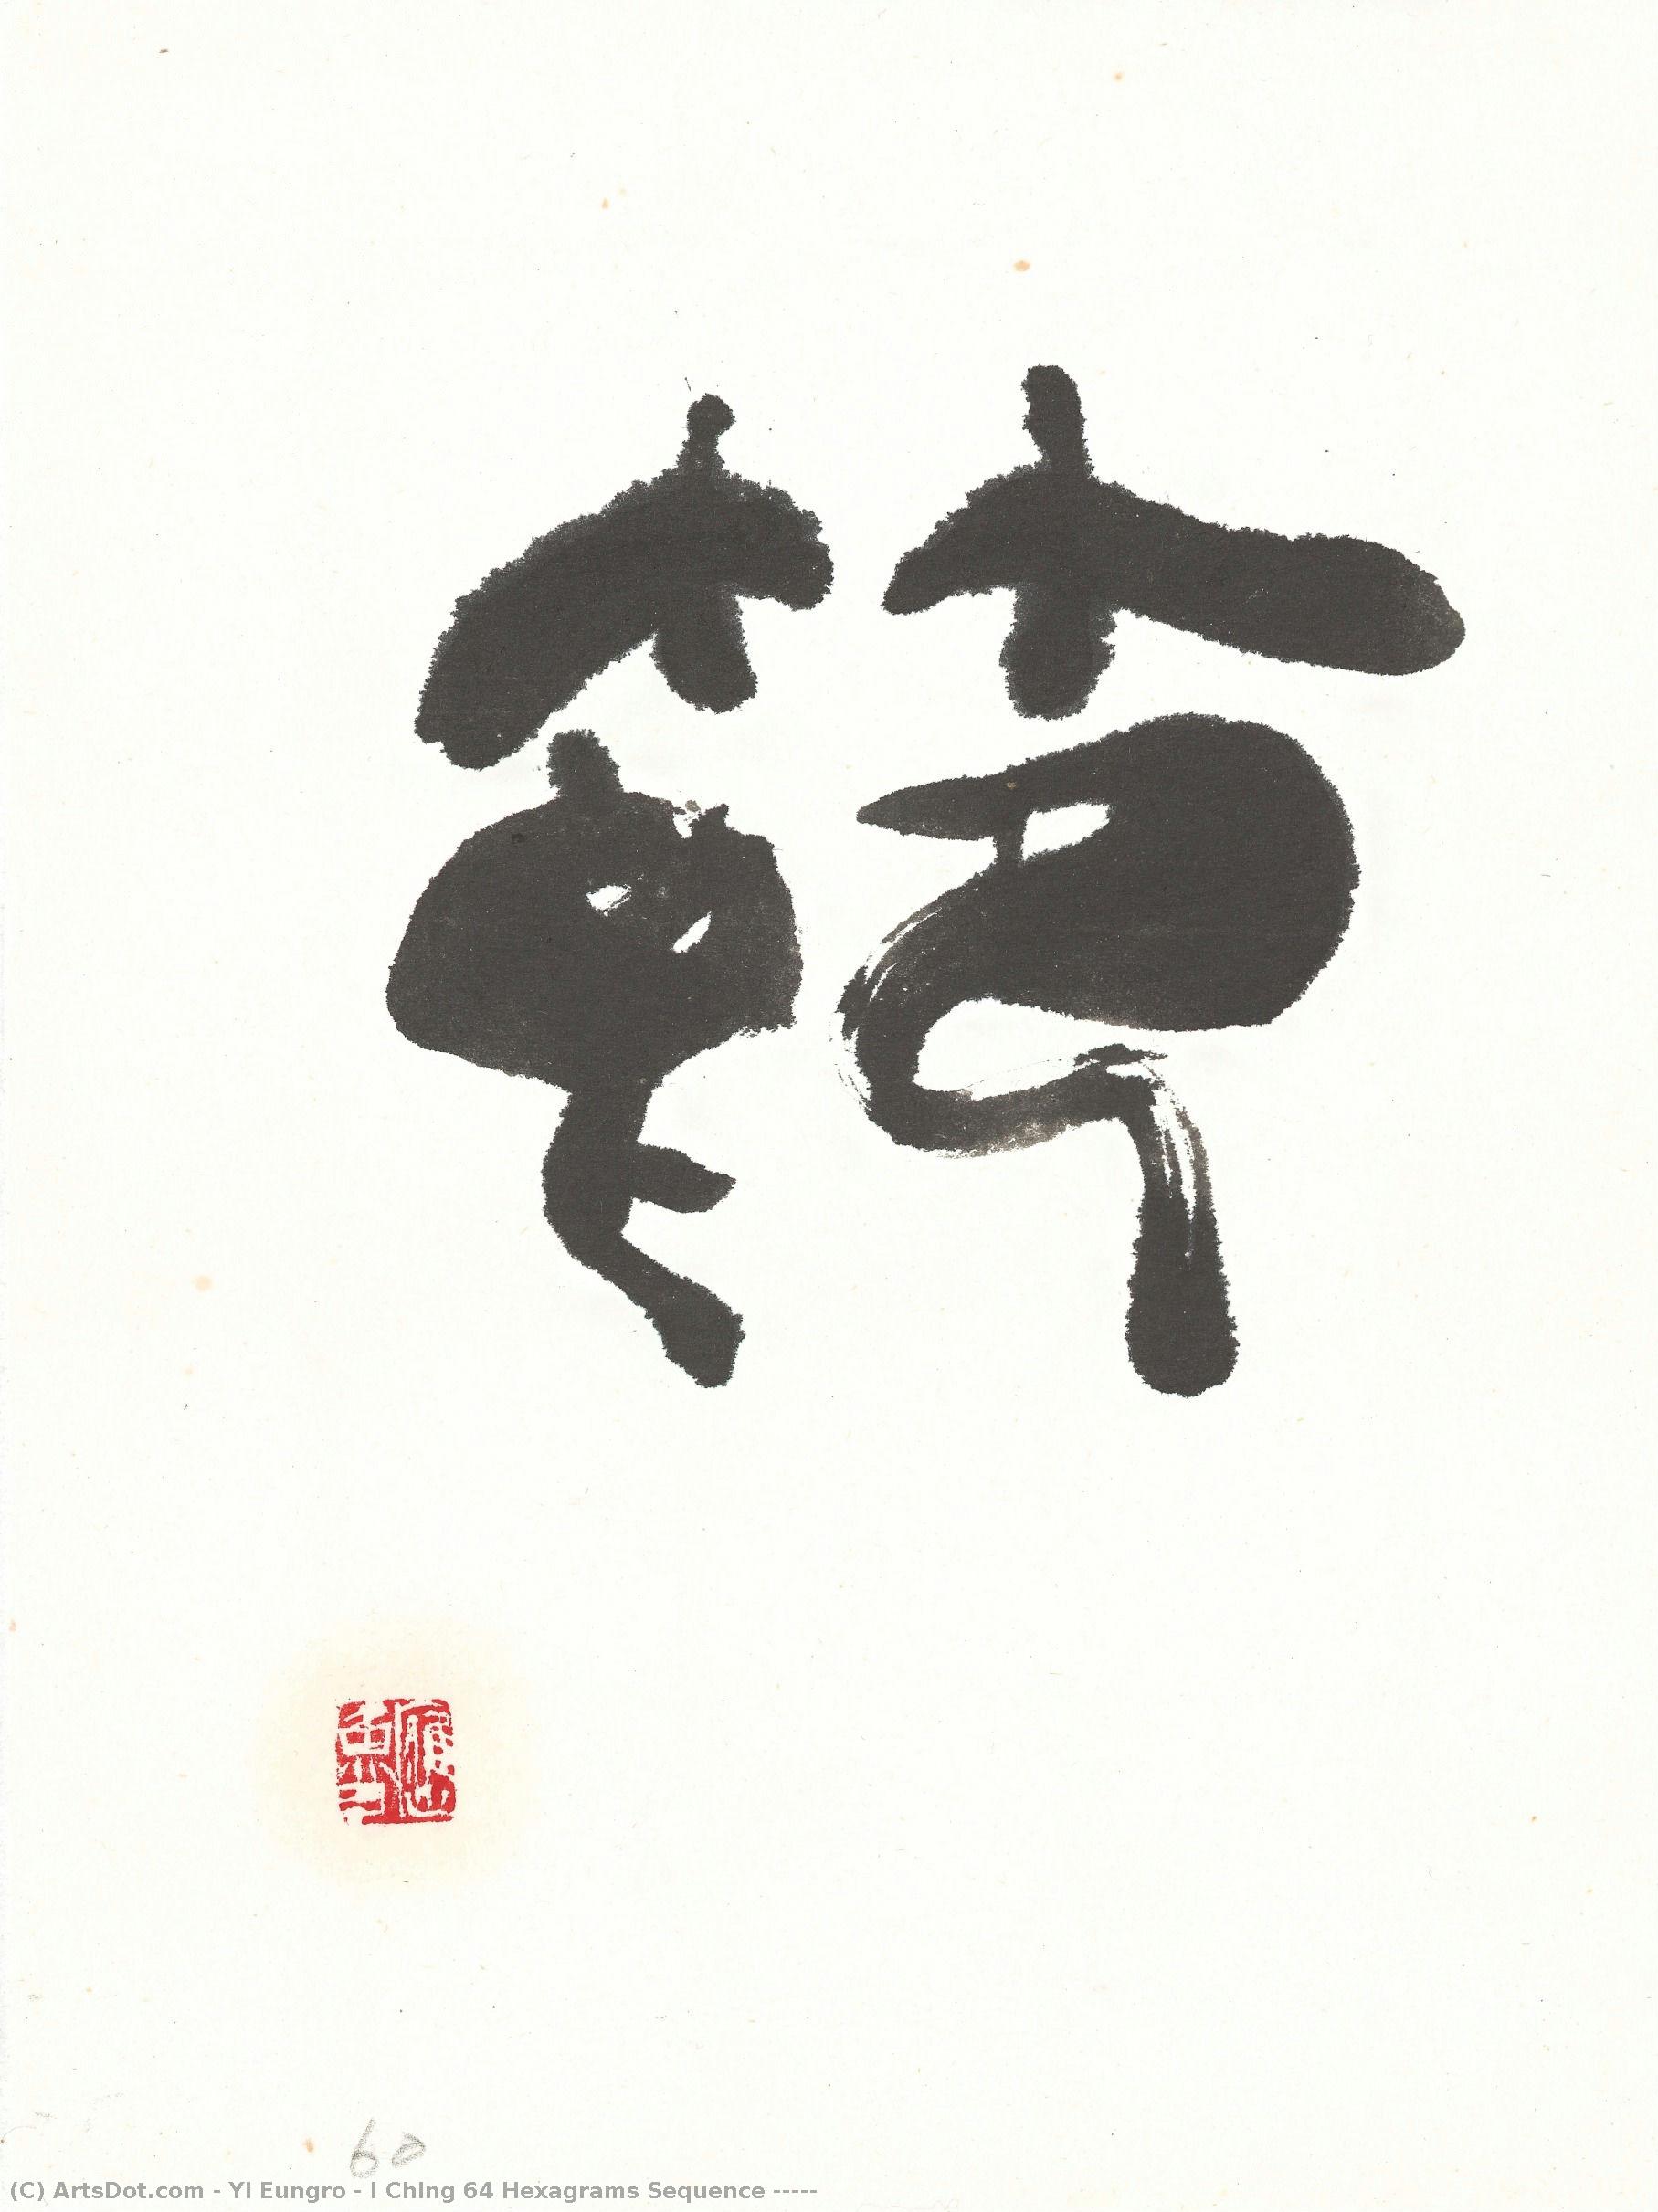 節
60
(C) ArtsDot.com - Yi Eungro - I Ching 64 Hexagrams Sequence -----